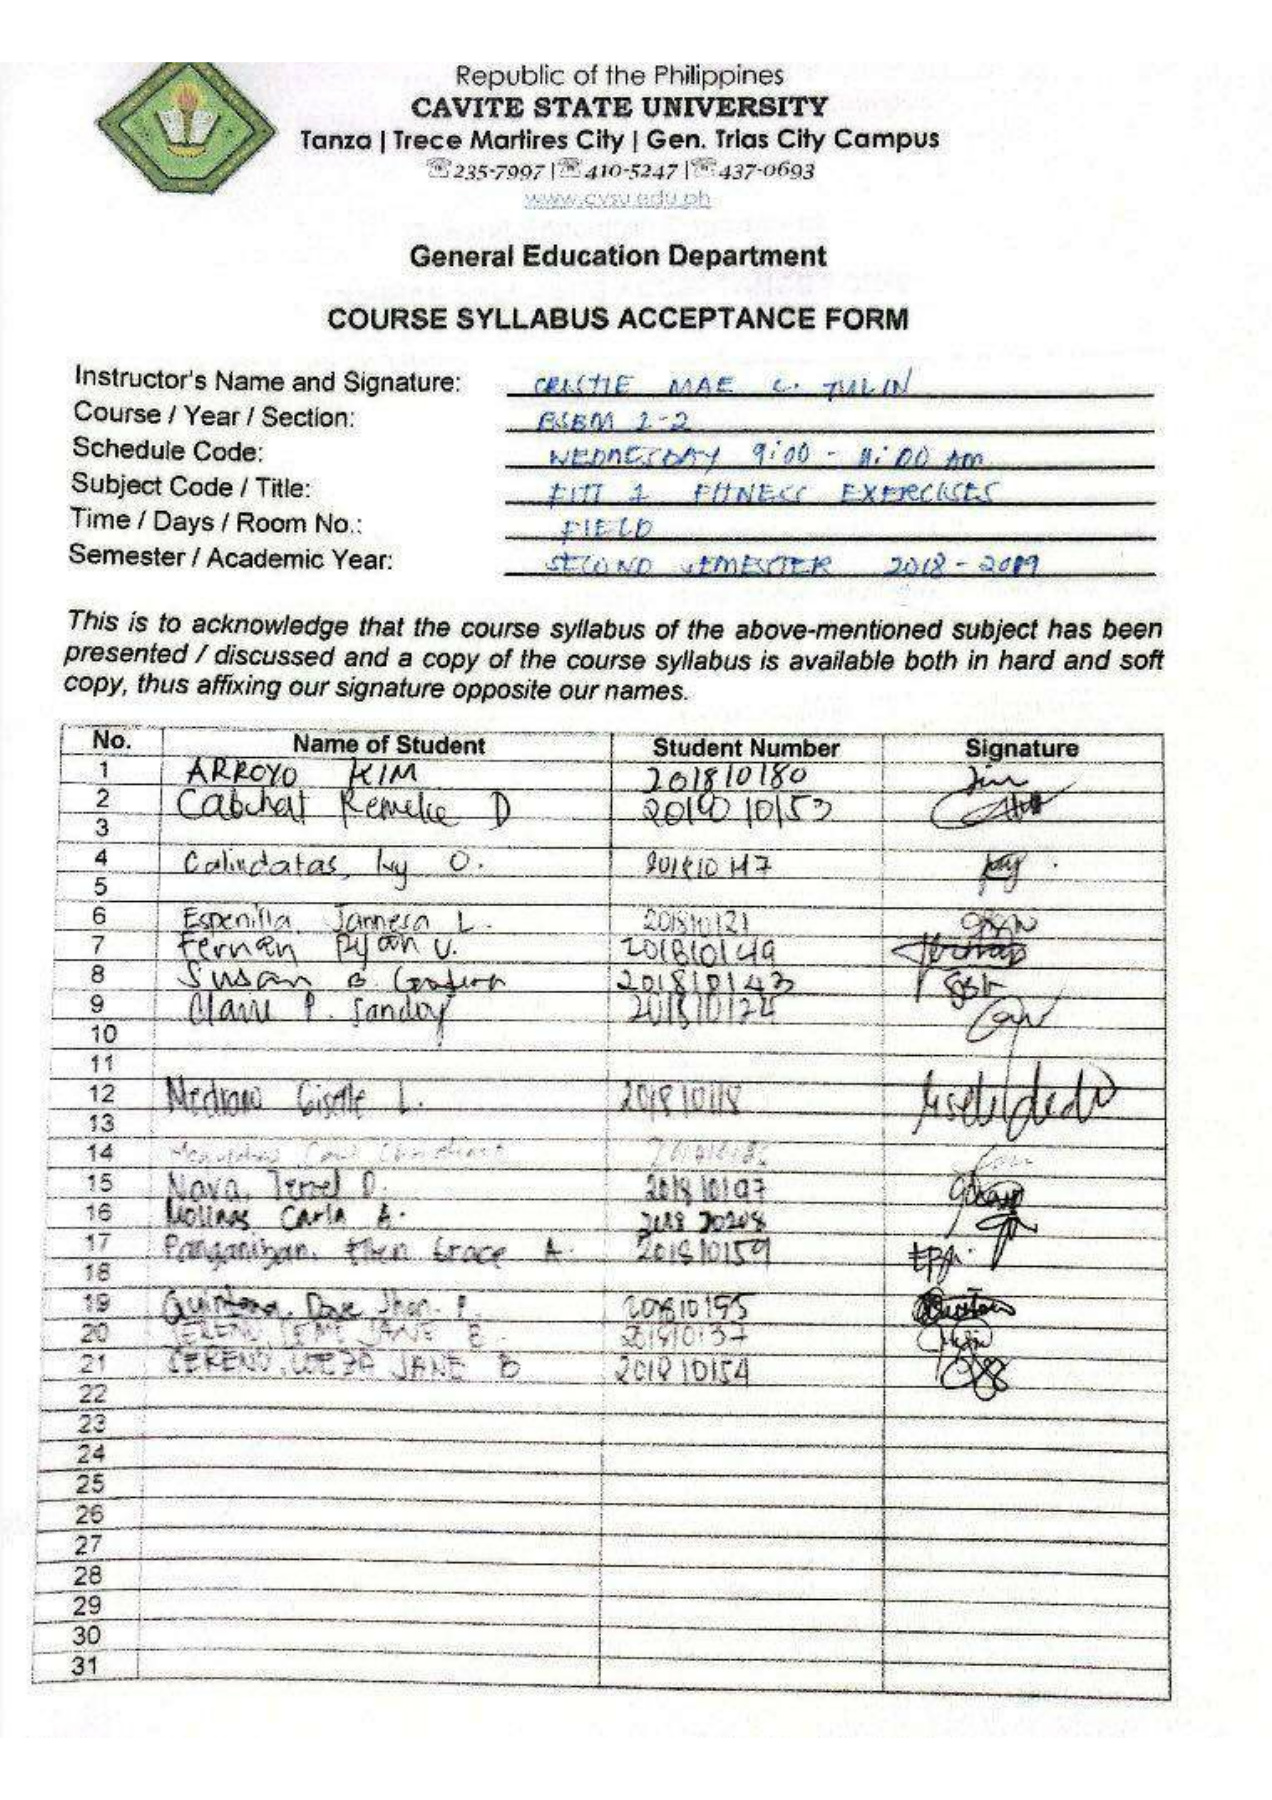 Republic of the Philippines
CAVITE STATE UNIVERSITY
Tanza | Trece Martires City | Gen. Trias City Campus
☏235-7997 |☏ 410-5247 |☏437-0693
www.cvsu.edu.ph
General Education Department
COURSE SYLLABUS ACCEPTANCE FORM
Instructor's Name and Signature: CRISTIE MAE C. TULIN
Course / Year / Section: BSBM 1-2
Schedule Code: WEDNESDAY 9:00 - 11:00 AM
Subject Code / Title: FITT 1 FITNESS EXERCISES
Time / Days / Room No.: FIELD
Semester / Academic Year: SECOND SEMESTER 2018 - 2019
This is to acknowledge that the course syllabus of the above-mentioned subject has been
presented / discussed and a copy of the course syllabus is available both in hard and soft
copy, thus affixing our signature opposite our names.
No. Name of Student Student Number Signature
1 ARROYO KIM 201810180
2 Remelie D
3
4 Calindatas, Ky O. 201810147
5
6 Espenilla, Jannesa L. 201810121
7 Fernan Ryan V. 201810149
8 Susan B. 201810143
9 Claire P. Sandoy
10
11
12 Medrano Giselle L. 201810118
13
14
15 Nava, D. 201810197
16 Molinas Carla A.
17 Panganiban, Ellen Grace A. 201810159
18
19 Quintana, Dave Jhon P. 201810195
20 SERENO JANE B. 201810137
21 SERENO, JANE B 201810154
22
23
24
25
26
27
28
29
30
31